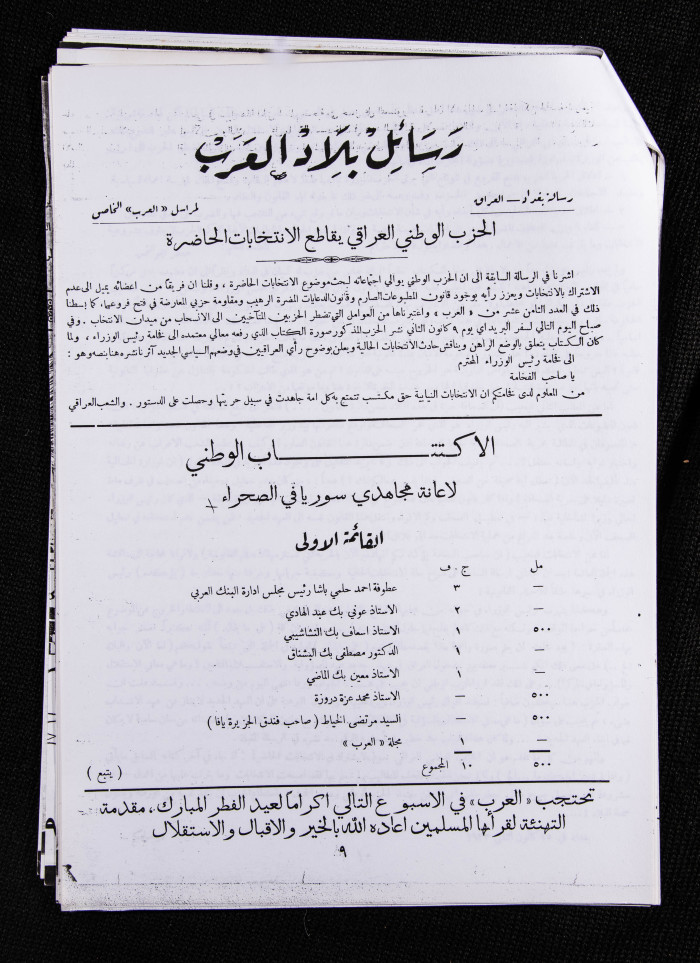 رسائل بلاد العرب
رسالة بغداد — العراق
لمراسل «العرب» الخاص
الحزب الوطني العراقي يقاطع الانتخابات الحاضرة
اشرنا في الرسالة السابقة الى ان الحزب الوطني يوالي اجتماعاته لبحث موضوع الانتخابات الحاضرة ، وقلنا ان فريقاً من اعضائه يميل الى عدم
الاشتراك بالانتخابات ويعزز رأيه بوجود قانون المطبوعات الصارم وقانون الدعايات المضرة الرهيب ومقاومة حزبي المعارضة في فتح فروعهما ، كما بسطنا
ذلك في العدد الثامن عشر من «العرب» واعتبرناها من العوامل التي تضطر الحزبين المتآخيين الى الانسحاب من ميدان الانتخاب . وفي
صباح اليوم التالي لسفر البريد اي يوم ٩ كانون الثاني نشر الحزب المذكور صورة الكتاب الذي رفعه معالي معتمده الى فخامة رئيس الوزراء ، ولما
كان الكتاب يتعلق بالوضع الراهن ويناقش حادث الانتخابات الحالية ويعلن بوضوح رأي العراقيين في وضعهم السياسي الجديد آثرنا نشره هنا بنصه وهو :
الى فخامة رئيس الوزراء المحترم
يا صاحب الفخامة
من المعلوم لدى فخامتكم ان الانتخابات النيابية حق مكتسب تتمتع به كل امة جاهدت في سبيل حريتها وحصلت على الدستور . والشعب العراقي
الاكتتـــاب الوطني
لاعانة مجاهدي سوريا في الصحراء
القائمة الاولى
مل ج . ف
— ٣ عطوفة احمد حلمي باشا رئيس مجلس ادارة البنك العربي
— ٢ الاستاذ عوني بك عبد الهادي
٥٠٠ ١ الاستاذ اسعاف بك النشاشيبي
— ١ الدكتور مصطفى بك البشناق
— ١ الاستاذ معين بك الماضي
٥٠٠ — الاستاذ محمد عزة دروزة
٥٠٠ — السيد مرتضى الخياط ( صاحب فندق الجزيرة يافا )
— ١ مجلة « العرب »
٥٠٠ ١٠ المجموع
( يتبع )
تحتجب «العرب» في الاسبوع التالي اكراماً لعيد الفطر المبارك ، مقدمة
التهنئة لقرائها المسلمين اعاده الله بالخير والاقبال والاستقلال
٩